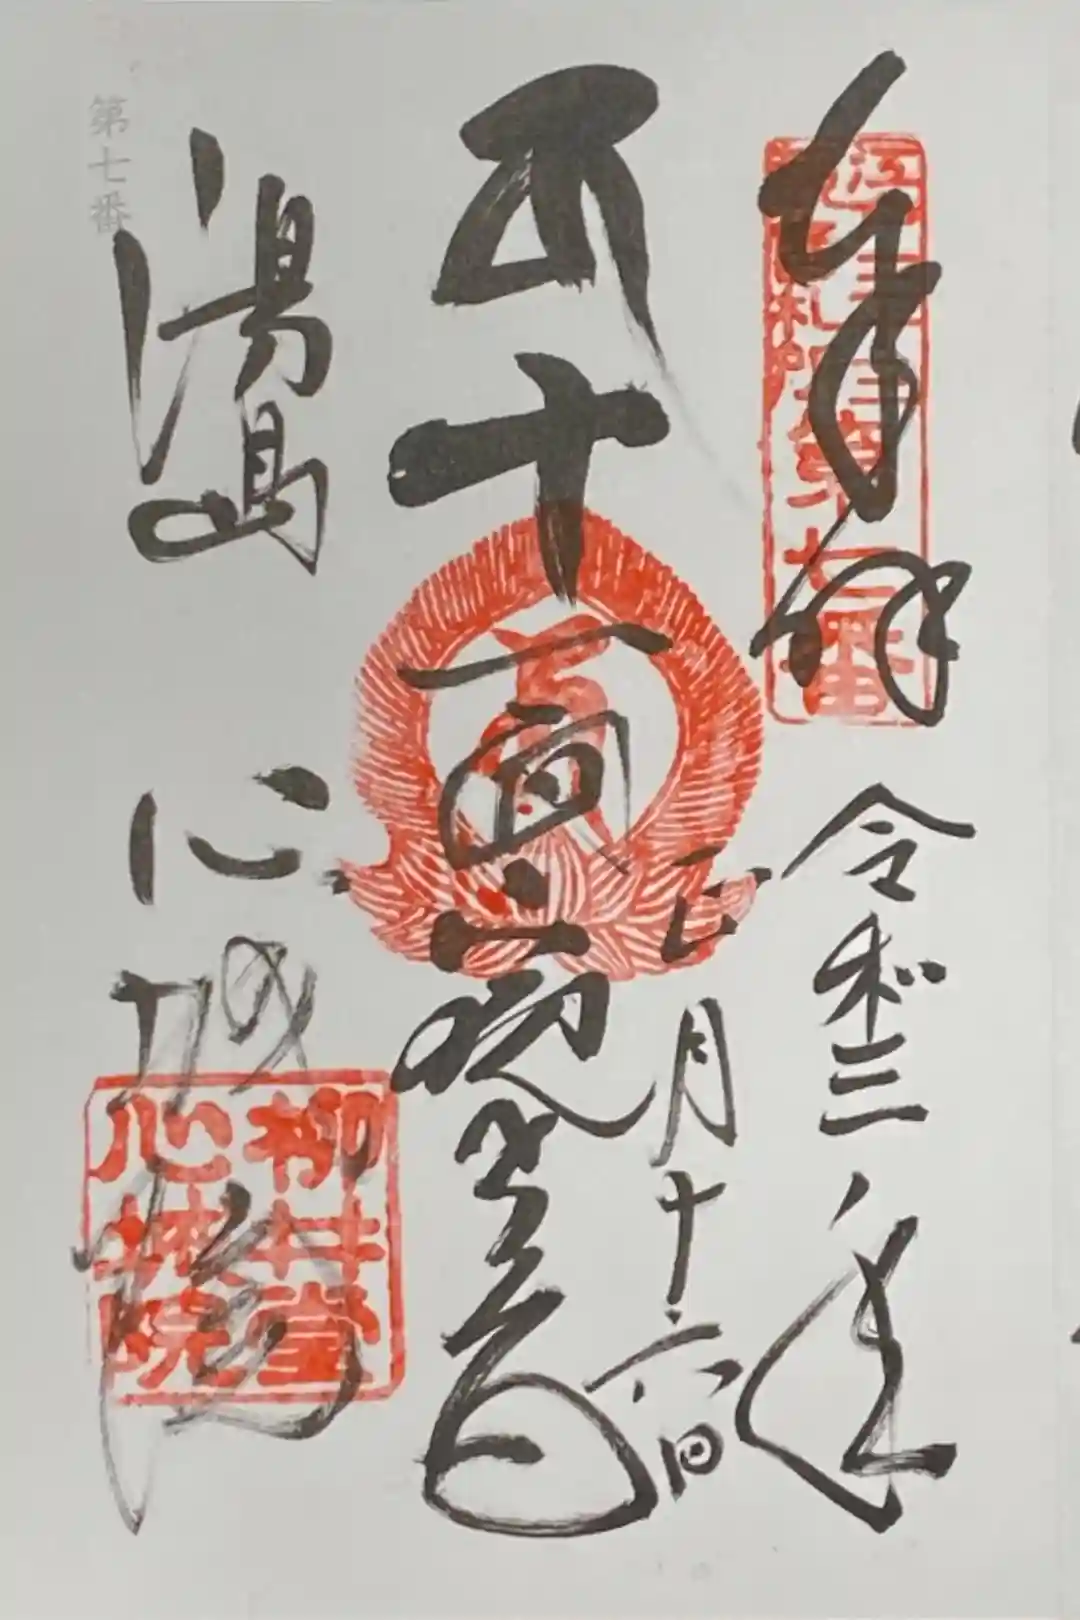 奉拝
第七番
令和三年
正月十六日
十一面観世音
湯島 心城院
柳井堂
心城院
第七番